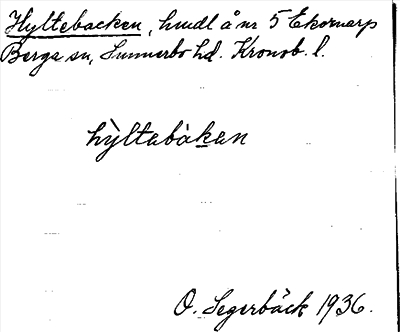 Hyltebacken, hmdl å nr 5 Ekornarp
Berga sn, Sunnerbo hd. Kronob. l.
hỳltabàkan
O. Segerbäck 1936.